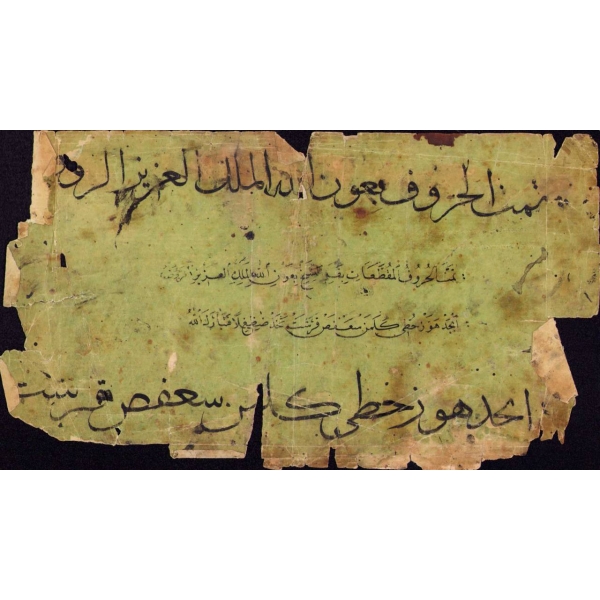 تمت الحروف بعون الله الملك العزيز الرؤ
تمت الحروف المقطعات بعون الله الملك العزيز
ابجد هوز حطي كلمن سعفص قرشت ثخذ ضظغ
ابجد هوز حطي كلمن سعفص قرشت